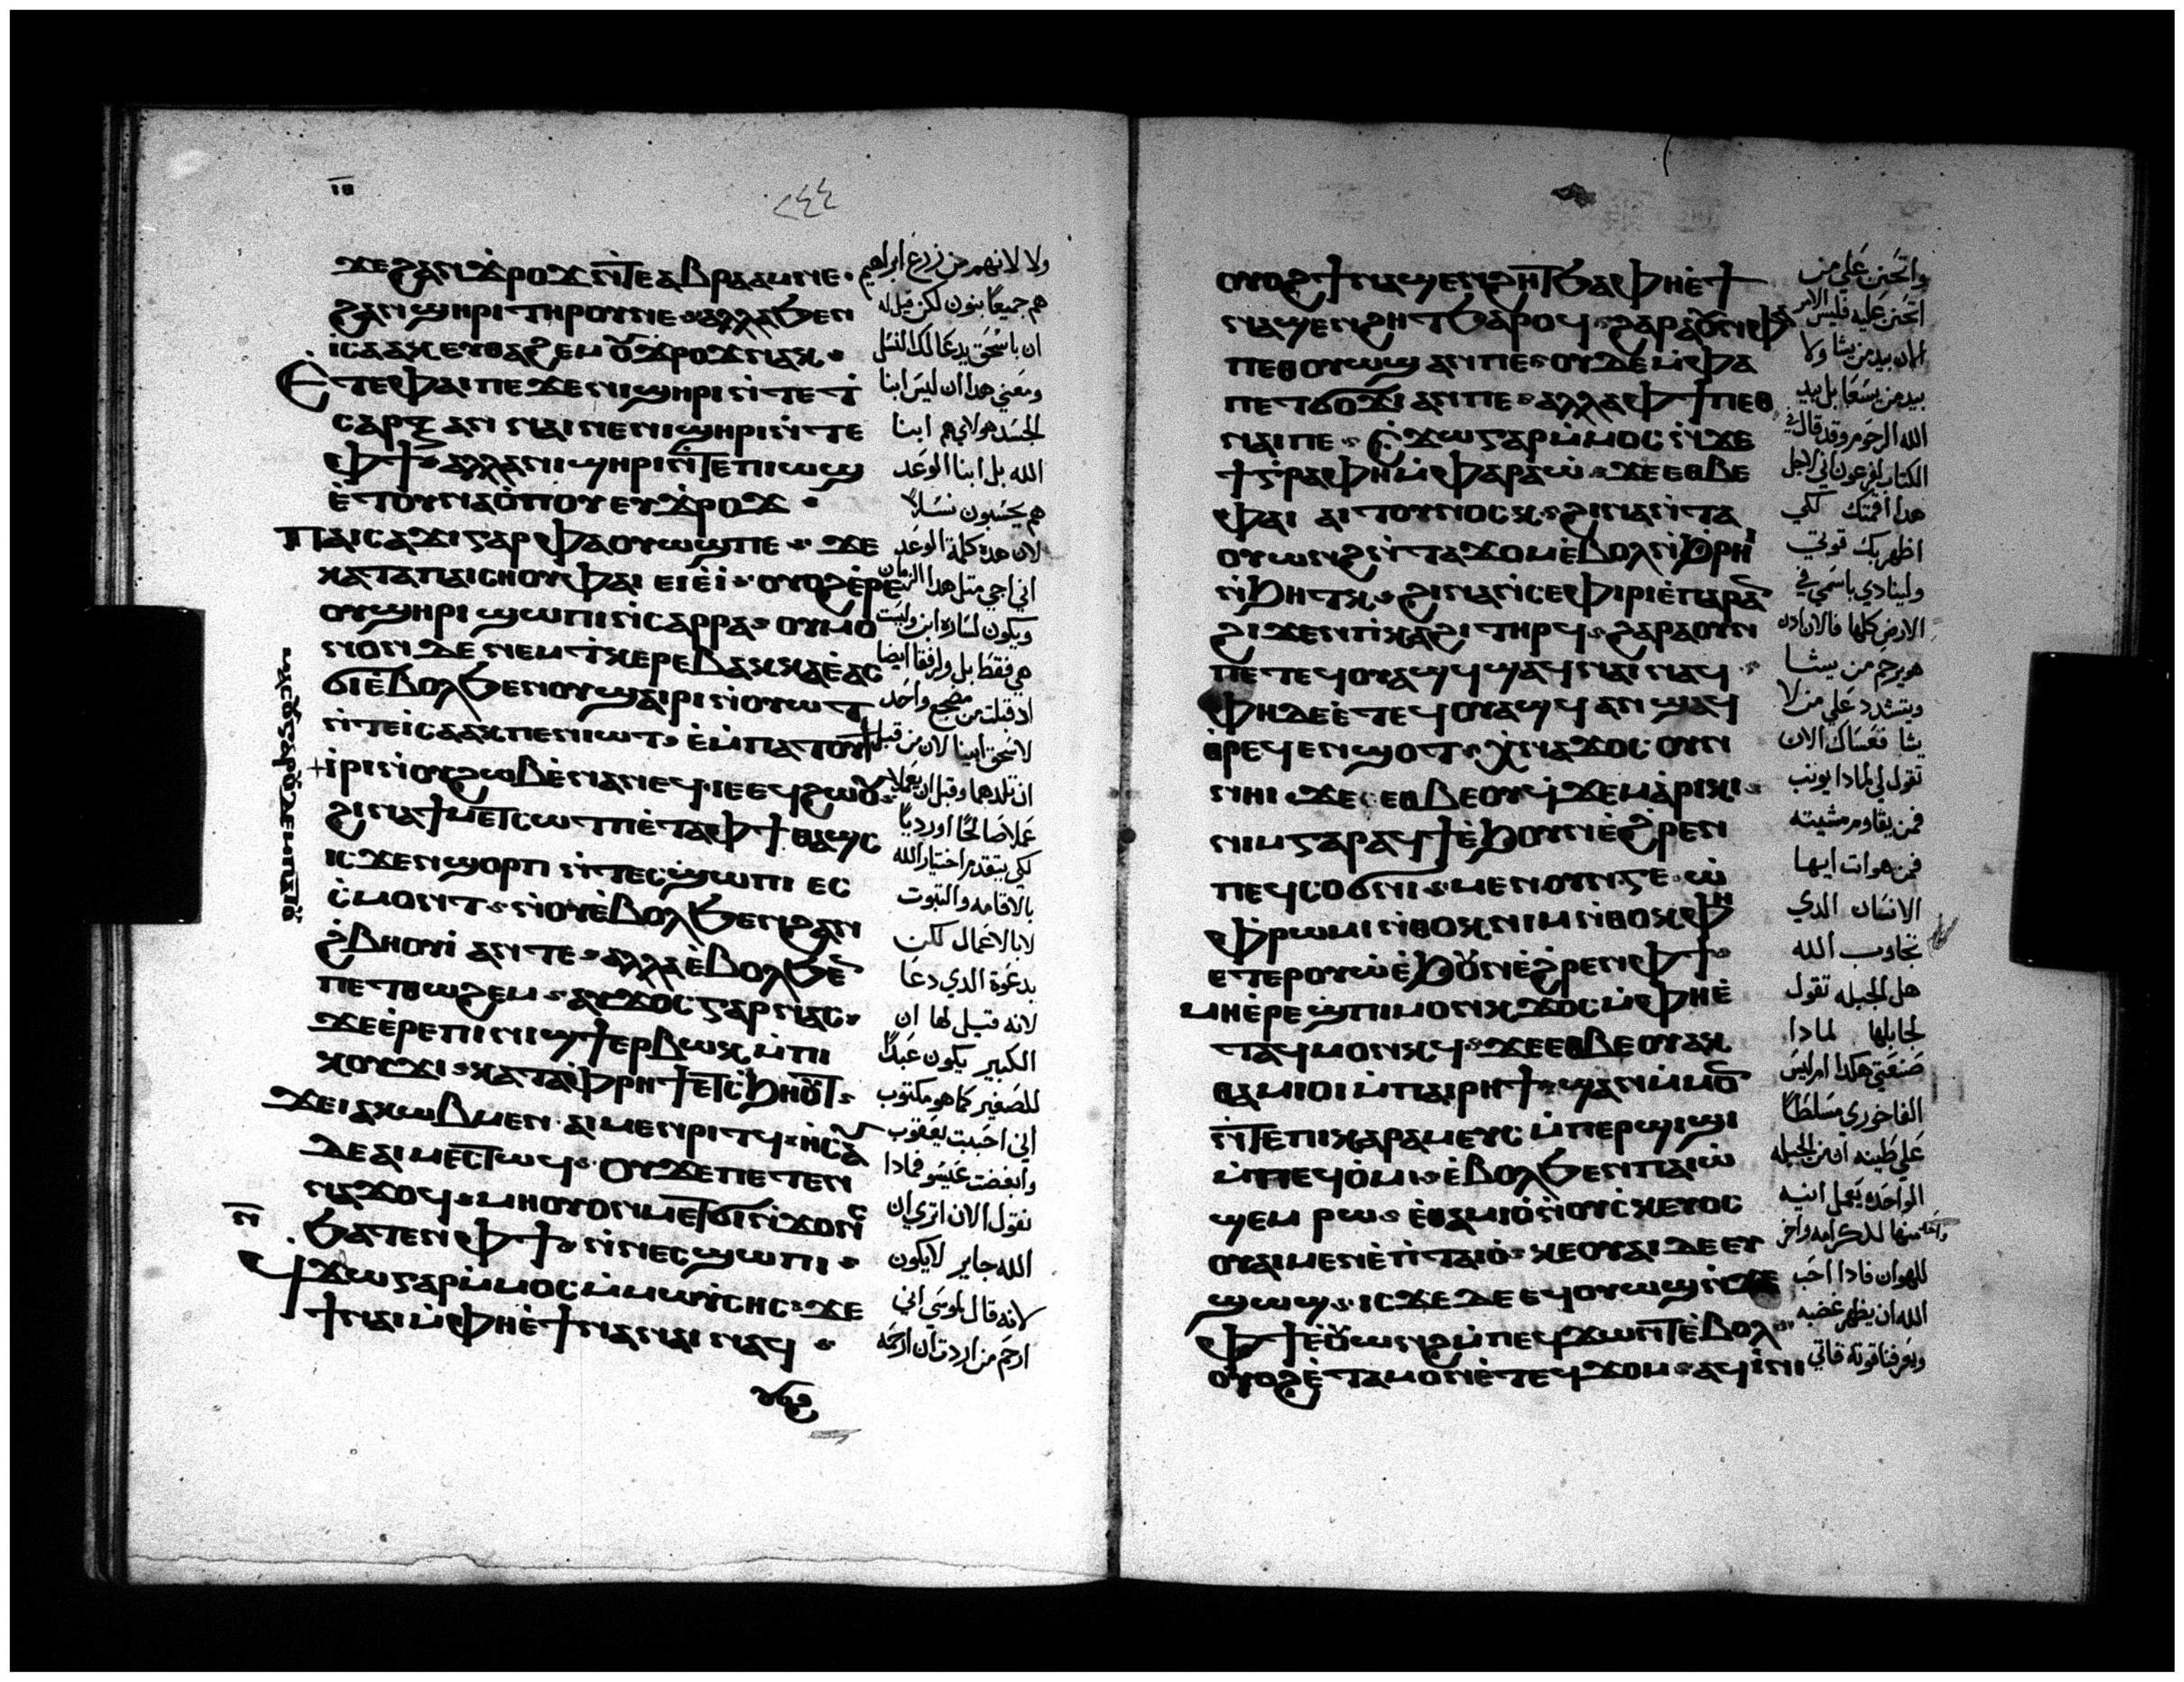 ⲓⲑ
٢٤٤
ϫⲉ ϩⲁⲛ ϫⲣⲟϫ ⲛⲧⲉ ⲁⲃⲣⲁⲁⲙ ⲛⲉ
ϩⲁⲛϣⲏⲣⲓ ⲧⲏⲣⲟⲩ ⲛⲉ ⲁⲗⲗⲁ ϧⲉⲛ
ⲓⲥⲁⲁⲕ ⲉⲩⲑⲁϩⲉⲙ ⲟⲩϫⲣⲟϫ ⲛⲁⲕ
Ⲉⲧⲉ ⲫⲁⲓ ⲡⲉ ϫⲉ ⲛⲓϣⲏⲣⲓ ⲛⲧⲉ ϯ
ⲥⲁⲣⲝ ⲁⲛ ⲛⲁⲓ ⲛⲉ ⲛⲓϣⲏⲣⲓ ⲛⲧⲉ
ⲫϯ ⲁⲗⲗⲁ ⲛⲓϣⲏⲣⲓ ⲛⲧⲉ ⲡⲓⲱϣ
ⲉⲧⲟⲩⲛⲁⲟⲡⲟⲩ ⲉⲩϫⲣⲟϫ
Ⲡⲁⲓⲥⲁϫⲓ ⲅⲁⲣ ⲫⲁ ⲟⲩⲱϣ ⲡⲉ ϫⲉ
ⲕⲁⲧⲁ ⲡⲁⲓⲥⲏⲟⲩ ⲫⲁⲓ ⲉⲓⲉⲓ ⲟⲩⲟϩ ⲉⲣⲉ
ⲟⲩϣⲏⲣⲓ ϣⲱⲡⲓ ⲛⲥⲁⲣⲣⲁ ⲟⲩⲙⲟ
ⲛⲟⲛ ⲇⲉ ⲛⲉⲙ ϯⲕⲉⲣⲉⲃⲁⲕⲕⲁ ⲉⲁⲥ
ϭⲓ ⲉⲃⲟⲗ ϧⲉⲛ ⲟⲩϣⲁⲓⲣⲓ ⲛⲟⲩⲱⲧ
ⲛⲧⲉ ⲓⲥⲁⲁⲕ ⲡⲉⲛⲓⲱⲧ ⲉⲙⲡⲁⲧⲟⲩ
ⲓⲣⲓ ⲛⲟⲩϩⲱⲃ ⲉⲛⲁⲛⲉϥ ⲓⲉ ⲉϥϩⲱⲟⲩ
ϩⲓⲛⲁ ϯⲙⲉⲧⲥⲱⲧⲡ ⲉⲧⲁ ⲫϯ ⲑⲁϣⲥ
ⲓⲥϫⲉⲛ ϣⲟⲣⲡ ⲛⲧⲉⲥϣⲱⲡⲓ ⲉⲥ
ⲥⲙⲟⲛⲧ ⲛⲟⲩⲉⲃⲟⲗ ϧⲉⲛ ϩⲁⲛ
ϩⲃⲏⲟⲩⲓ ⲁⲛ ⲧⲉ ⲁⲗⲗⲁ ⲉⲃⲟⲗ ϧⲉⲛ
ⲡⲉⲧⲑⲱϩⲉⲙ ⲁⲩϫⲟⲥ ⲅⲁⲣ ⲛⲁⲥ
ϫⲉ ⲉⲣⲉ ⲡⲓⲛⲓϣϯ ⲉⲣⲃⲱⲕ ⲙⲡⲓ
ⲕⲟⲩϫⲓ ⲕⲁⲧⲁ ⲫⲣⲏϯ ⲉⲧⲥϧⲏⲟⲩⲧ
ϫⲉ ⲓⲁⲕⲱⲃ ⲙⲉⲛ ⲁⲓⲙⲉⲛⲣⲓⲧϥ ⲏⲥⲁⲩ
ⲇⲉ ⲁⲓⲙⲉⲥⲧⲱϥ ⲟⲩ ϫⲉ ⲡⲉⲧⲉⲛ
ⲛⲁϫⲟϥ ⲙⲏ ⲟⲩⲟⲛ ⲙⲉⲧϭⲓ ⲛϫⲟⲛⲥ
ϧⲁⲧⲉⲛ ⲫϯ ⲛⲛⲉⲥϣⲱⲡⲓ
ϥϫⲱ ⲅⲁⲣ ⲙⲙⲟⲥ ⲙⲙⲱⲩⲥⲏⲥ ϫⲉ
ϯⲛⲁⲓ ⲙⲫⲏ ⲉϯⲛⲁⲛⲁⲓ ⲛⲁϥ
ولا لانهم من زرع ابراهيم
هم جميعا بنون لكن قيل له
ان باسحق يدعا لك النسل
ومعني هدا ان ليس ابنا
الجسد هولاي هم ابنا
الله بل ابنا الوعد
هم يحسبون نسلا
لان هده كلمة الوعد
اني اجي مثل هدا الزمان
ويكون لساره ابن وليست
هي فقط بل ورفقا ايضا
اد قبلت من مضجع واحد
لاسحق ابينا لان من قبل
ان تلدهما وقبل ان يعملا
عملا صالحا او رديا
لكي يتقدم اختيار الله
بالاقامه والتبوت
لا بالاعمال لكن
بدعوة الدي دعا
لانه قيل لها ان
الكبير يكون عبدا
للصغير كما هو مكتوب
اني احببت يعقوب
وابغضت عيسو فمادا
نقول الان اتري ان
الله جاير لا يكون
لانه قال لموسي اني
ارحم من اردت ان ارحمه
ⲟⲩⲟϩ ϯⲛⲁϣⲉⲛϩⲏⲧ ϧⲁ ⲫⲏ ⲉϯ
ⲛⲁϣⲉⲛϩⲏⲧ ϧⲁⲣⲟϥ ϩⲁⲣⲁ ⲟⲩⲛ ⲫⲁ
ⲡⲉⲑⲟⲩⲱϣ ⲁⲛ ⲡⲉ ⲟⲩⲇⲉ ⲙⲫⲁ
ⲡⲉⲧϭⲟϫⲓ ⲁⲛ ⲡⲉ ⲁⲗⲗⲁ ⲫϯ ⲡⲉⲑ
ⲛⲁⲓ ⲡⲉ ⲥϫⲱ ⲅⲁⲣ ⲙⲙⲟⲥ ⲛϫⲉ
ϯⲅⲣⲁⲫⲏ ⲙⲫⲁⲣⲁⲱ ϫⲉ ⲉⲑⲃⲉ
ⲫⲁⲓ ⲁⲓⲧⲟⲩⲛⲟⲥⲕ ϩⲓⲛⲁ ⲛⲧⲁ
ⲟⲩⲱⲛϩ ⲛⲧⲁϫⲟⲙ ⲉⲃⲟⲗ ⲛϧⲣⲏⲓ
ⲛϧⲏⲧⲕ ϩⲓⲛⲁ ⲛⲥⲉⲫⲓⲣⲓ ⲉⲡⲁⲣⲁⲛ
ϩⲓϫⲉⲛ ⲡⲕⲁϩⲓ ⲧⲏⲣϥ ϩⲁⲣⲁ ⲟⲩⲛ
ⲡⲉⲧⲉϥⲟⲩⲁϣϥ ϣⲁϥⲛⲁⲓ ⲛⲁϥ
ⲫⲏ ⲇⲉ ⲉⲧⲉϥⲟⲩⲁϣϥ ⲁⲛ ϣⲁϥ
ⲑⲣⲉϥⲉⲛϣⲟⲧ ⲭⲛⲁϫⲟⲥ ⲟⲩⲛ
ⲛⲏⲓ ϫⲉ ⲉⲑⲃⲉⲟⲩ ϥϫⲉⲙⲁⲣⲓⲕⲓ
ⲛⲓⲙ ⲅⲁⲣ ⲁϥϯ ⲉϧⲟⲩⲛ ⲉϩⲣⲉⲛ
ⲡⲉϥⲥⲟϭⲛⲓ ⲙⲉⲛⲟⲩⲛⲅⲉ ⲱ
ⲫⲣⲱⲙⲓ ⲛⲑⲟⲕ ⲛⲓⲙ ⲛⲑⲟⲕ ⲫⲏ
ⲉⲧⲉⲣⲟⲩⲱ ⲉϧⲟⲩⲛ ⲉϩⲣⲉⲛ ⲫϯ
ⲙⲏ ⲉⲣⲉ ⲡⲓⲙⲟⲛⲕ ϫⲟⲥ ⲙⲫⲏ ⲉ
ⲧⲁϥⲙⲟⲛⲕϥ ϫⲉ ⲉⲑⲃⲉⲟⲩ ⲁⲕ
ⲑⲁⲙⲓⲟⲓ ⲙⲡⲁⲓⲣⲏϯ ϣⲁⲛ ⲙⲙⲟⲛ
ⲛⲧⲉ ⲡⲓⲕⲁⲣⲁⲙⲉⲩⲥ ⲙⲡⲉⲣϣⲓϣⲓ
ⲙⲡⲉϥⲟⲙⲓ ⲉⲃⲟⲗ ϧⲉⲛ ⲡⲁⲓⲱ
ϣⲉⲙ ⲣⲱ ⲉⲑⲁⲙⲓⲟ ⲛⲟⲩⲥⲕⲉⲩⲟⲥ
ⲟⲩⲁⲓ ⲙⲉⲛ ⲉⲡⲧⲁⲓⲟ ⲕⲉⲟⲩⲁⲓ ⲇⲉ ⲉⲩ
ϣⲱϣ ⲓⲥϫⲉ ⲇⲉ ⲉϥⲟⲩⲱϣ ⲛϫⲉ
ⲫϯ ⲉⲟⲩⲱⲛϩ ⲙⲡⲉϥϫⲱⲛⲧ ⲉⲃⲟⲗ
ⲟⲩⲟϩ ⲉⲧⲁⲙⲟⲛ ⲉⲧⲉϥϫⲟⲙ ⲁϥⲓⲛⲓ
واتحنن علي من
اتحنن عليه فليس الامر
الان بيد من يشا ولا
بيد من يسعا بل بيد
الله الرحوم وقد قال في
الكتاب لفرعون اني لاجل
هدا اقمتك لكي
اظهر بك قوتي
ولينادي باسمي في
الارض كلها فالان ادن
هو يرحم من يشا
ويتشدد علي من لا
يشا فعساك الان
تقول لي لمادا يونب
فمن يقاوم مشيته
فمن هو انت ايها
الانسان الدي
تجاوب الله
هل الجبله تقول
لجابلها لمادا
صنعتي هكدا ام ليس
الفاخوري مسلطا
علي طينه ان من الجبله
الواحده يعمل انيه
منها للكرامه واخر
للهوان فادا احب
الله ان يظهر غضبه
ويعرفنا قوته فاتي